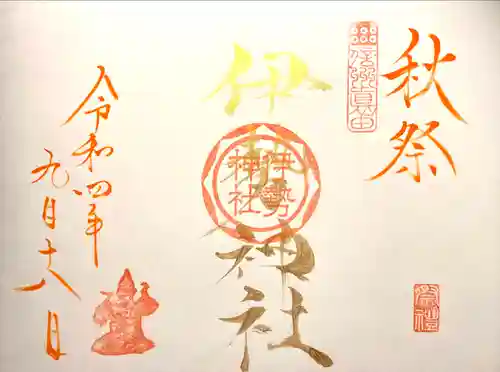 秋祭
伊勢神社
伊勢
神社
令和四年
九月十八日
祭禮